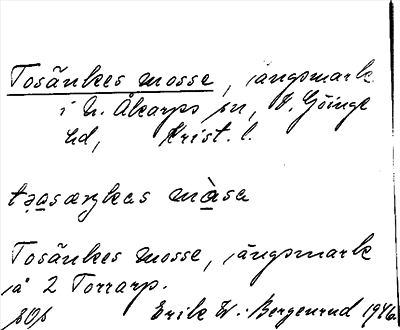 Tosänkes mosse, ängsmark
i N. Åkarps sn, V. Göinge
hd, Krist. l.
Tosänkes mosse, ängsmark
å 2 Torrarp.
Erik W. Bergenrud 1946.